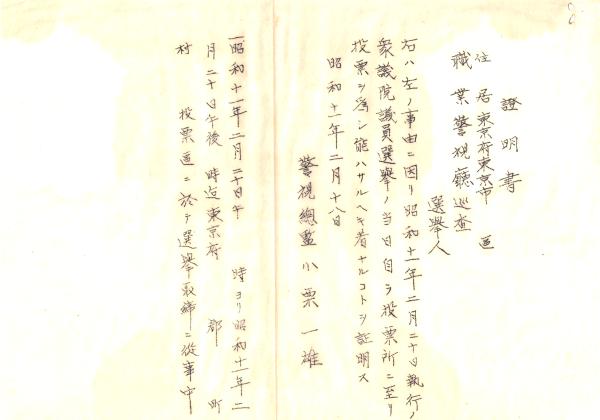 證明書
住居東京府東京市 區
職業警視廳巡査
選擧人
右ハ左ノ事由ニ因リ昭和十一年二月二十日執行ノ
衆議院議員選擧ノ当日自ラ投票所ニ至リ
投票ヲ爲シ能ハサルヘキ者ナルコトヲ証明ス
昭和十一年二月十八日
警視總監小栗一雄
一昭和十一年二月二十日午 時ヨリ昭和十一年二
月二十日午後 時迄東京府 郡 町
村 投票區ニ於テ選擧取締ニ從事中